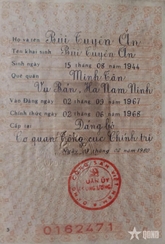 Họ và tên Bùi Tuyên Ân
Tên khai sinh Bùi Tuyên Ân
Sinh ngày 15 tháng 08 năm 1944
Quê quán Minh Tân
Vụ Bản, Hà Nam Ninh
Vào Đảng ngày 02 tháng 09 năm 1967
Chính thức ngày 02 tháng 06 năm 1968
Cấp tại Đảng bộ
Cơ quan Tổng cục Chính trị
Ngày tháng năm 1980
0162471